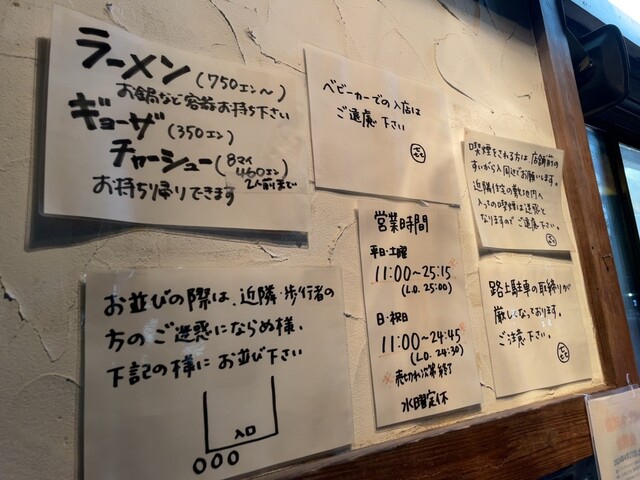 ラーメン(750エン〜)
お鍋など容器お持ち下さい
ギョーザ(350エン)
チャーシュー(8マイ
460エン)
2人前まで
お持ち帰りできます
ベビーカーでの入店は
ご遠慮下さい
喫煙をされる方は、店舗前の
すいがら入周辺でお願います。
近隣住宅の敷地内へ
入っての喫煙は迷惑と
なりますのでご遠慮下さい。
営業時間
平日・土曜
11:00〜25:15
(L.O. 25:00)
日・祝日
11:00〜24:45
(L.O. 24:30)
※売切れ次第終了
水曜定休
路上駐車の取締りが
厳しくなっております。
ご注意下さい。
お並びの際は、近隣・歩行者の
方のご迷惑にならぬ様、
下記の様にお並び下さい
入口